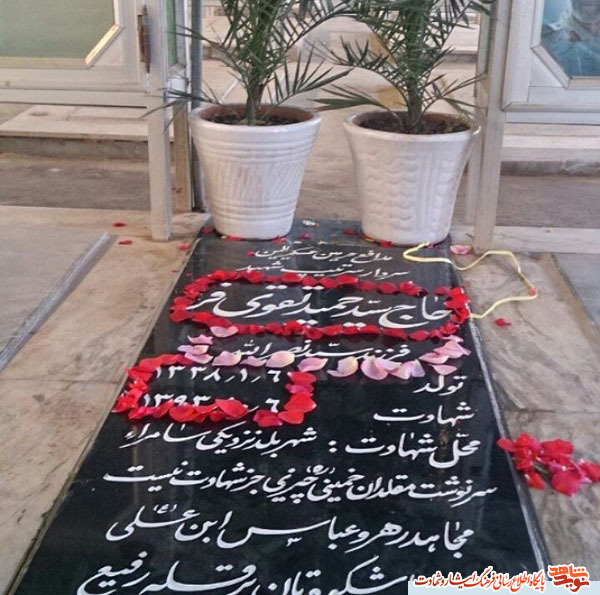 مدافع حرمین عسکریین
سردار سرتیپ شهید
حاج سید حمید تقوی فر
فرزند سید نصرالله
تولد ۱۳۳۸/۱/۶
شهادت ۱۳۹۳ ۶
محل شهادت : شهر بلد نزدیکی سامراء
سرنوشت مقلدان خمینی (ره) چیزی جز شهادت نیست
مجاهد رهرو عباس ابن علی (ع)
قله رفیع
پایگاه اطلاع رسانی فرهنگ ایثار و شهادت